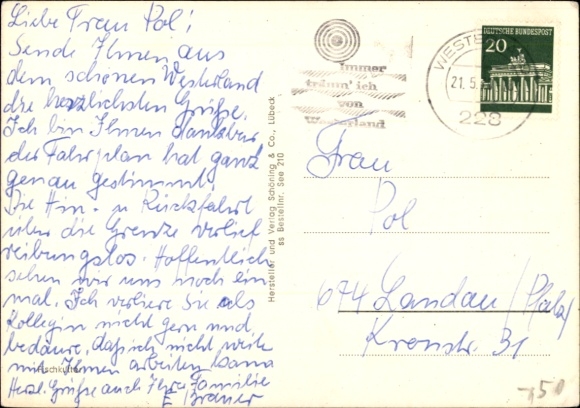 Liebe Frau Pol!
Sende Ihnen aus
dem schönen Westerland
die herzlichsten Grüße.
Ich bin Ihnen dankbar
der Fahrplan hat ganz
genau gestimmt.
Die Hin- u Rückfahrt
über die Grenze verlief
reibungslos. Hoffentlich
sehen wir uns noch ein
mal. Ich verliere Sie als
Kollegin nicht gern und
bedaure, daß ich nicht weiter
mit Ihnen arbeiten kann
Herzl. Grüße auch Ihre Familie
E Brauer
Fischkutter
Hersteller und Verlag Schöning & Co., Lübeck
ss Bestellnr. See 210
Immer
träum' ich
von
Westerland
21.5.
228
DEUTSCHE BUNDESPOST
20
Frau
Pol
674 Landau/Pfalz
Kronstr. 31
50